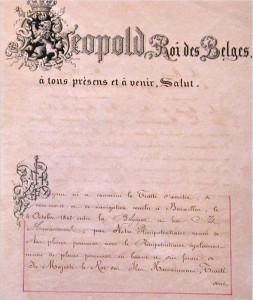 Léopold, Roi des Belges,
à tous présens et à venir, Salut.
Ayant vu et examiné le Traité d'amitié, de
commerce et de navigation conclu à Bruxelles, le
4 Octobre 1862 entre la Belgique et les Iles
par Notre Plénipotentiaire muni de
Ses pleins pouvoirs avec le Plénipotentiaire également
muni de pleins pouvoirs en bonne et due forme de
Sa Majesté le Roi des Iles Hawaiiennes, Traité